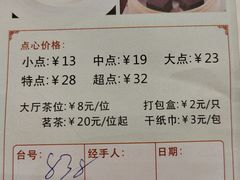 点心价格:
小点:¥13 中点:¥19 大点:¥23
特点:¥28 超点:¥32
大厅茶位:¥8元/位 打包盒:¥2元/只
茗茶:¥20元/位起 干纸巾:¥3元/包
台号: 838 经手人: 日期: